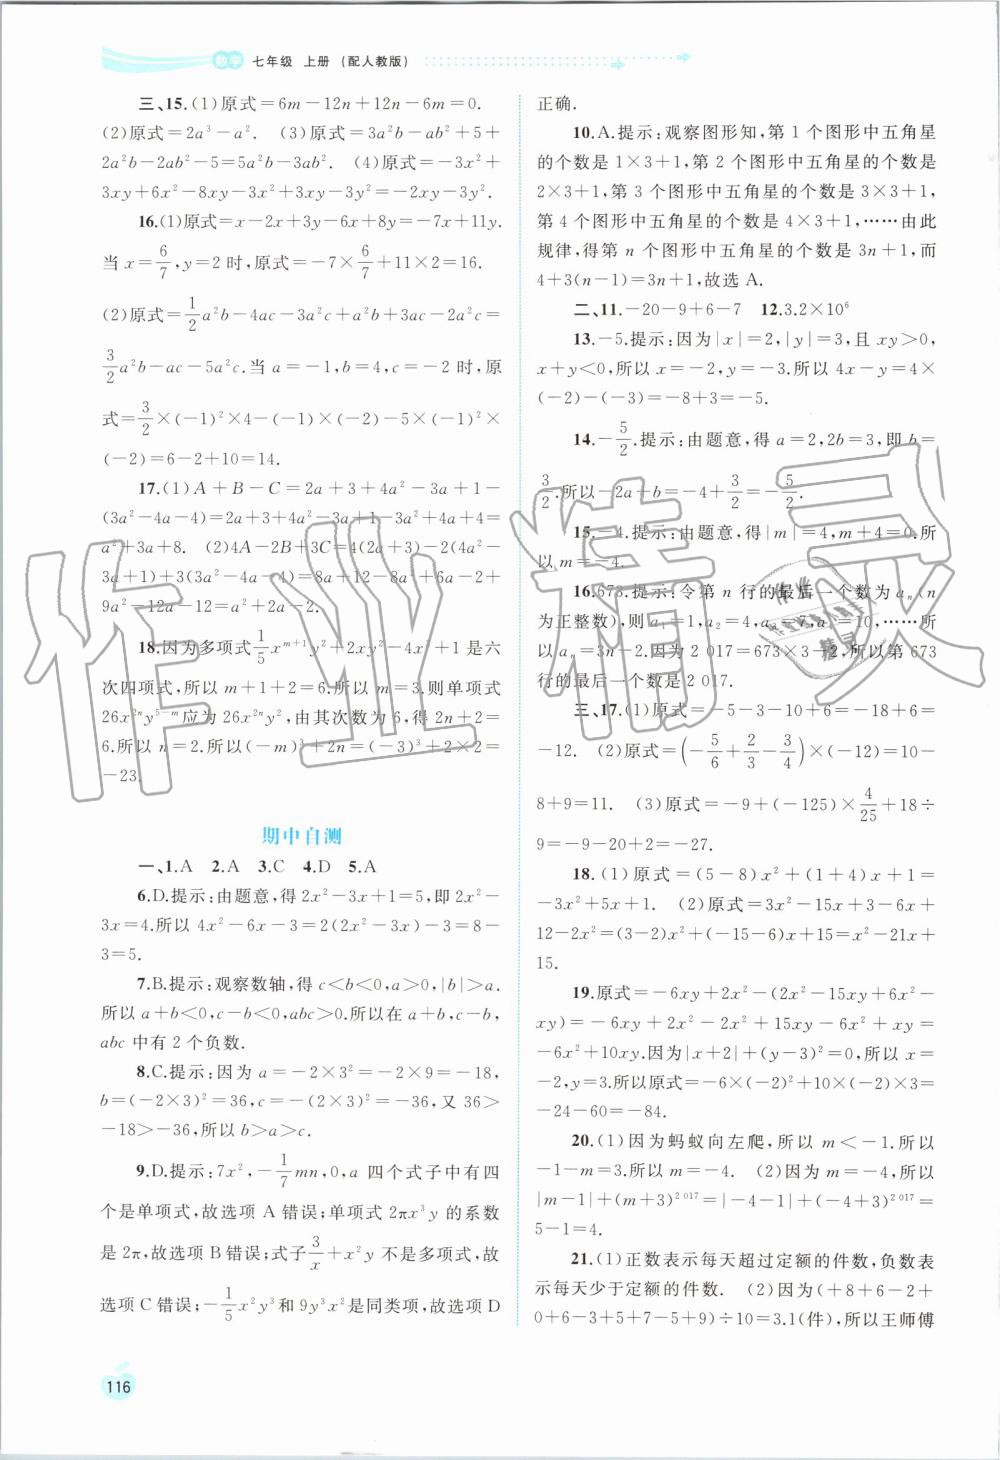 数学 七年级 上册 (配人教版)
三、15.(1)原式=6m-12n+12n-6m=0.
(2)原式=2a³-a². (3)原式=3a²b-ab²+5+
2a²b-2ab²-5=5a²b-3ab². (4)原式=-3x²+
3xy+6x²-8xy-3x²+3xy-3y²=-2xy-3y².
16.(1)原式=x-2x+3y-6x+8y=-7x+11y.
当 x=6/7,y=2 时,原式=-7×6/7+11×2=16.
(2)原式=1/2a²b-4ac-3a²c+a²b+3ac-2a²c=
3/2a²b-ac-5a²c.当 a=-1,b=4,c=-2 时,原
式=3/2×(-1)²×4-(-1)×(-2)-5×(-1)²×
(-2)=6-2+10=14.
17.(1)A+B-C=2a+3+4a²-3a+1-
(3a²-4a-4)=2a+3+4a²-3a+1-3a²+4a+4=
a²+3a+8. (2)4A-2B+3C=4(2a+3)-2(4a²-
3a+1)+3(3a²-4a-4)=8a+12-8a²+6a-2+
9a²-12a-12=a²+2a-2.
18.因为多项式1/5x^(m+1)y²+2xy²-4x³+1是六
次四项式,所以 m+1+2=6.所以 m=3.则单项式
26x^(2n)y^(5-m)应为 26x^(2n)y²,由其次数为 6,得 2n+2=
6.所以 n=2.所以(-m)³+2n=(-3)³+2×2=
-23.
期中自测
一、1.A 2.A 3.C 4.D 5.A
6.D.提示:由题意,得 2x²-3x+1=5,即 2x²-
3x=4.所以 4x²-6x-3=2(2x²-3x)-3=8-
3=5.
7.B.提示:观察数轴,得 c<b<0,a>0,|b|>a.
所以 a+b<0,c-b<0,abc>0.所以在 a+b,c-b,
abc 中有 2 个负数.
8.C.提示:因为 a=-2×3²=-2×9=-18,
b=(-2×3)²=36,c=-(2×3)²=-36,又 36>
-18>-36,所以 b>a>c.
9.D.提示:7x²,-1/7mn,0,a 四个式子中有四
个是单项式,故选项 A 错误;单项式 2πx³y 的系数
是 2π,故选项 B 错误;式子3/x+x²y 不是多项式,故
选项 C 错误;-1/5x²y³和 9y³x²是同类项,故选项 D
正确.
10.A.提示:观察图形知,第 1 个图形中五角星
的个数是 1×3+1,第 2 个图形中五角星的个数是
2×3+1,第 3 个图形中五角星的个数是 3×3+1,
第 4 个图形中五角星的个数是 4×3+1,……由此
规律,得第 n 个图形中五角星的个数是 3n+1,而
4+3(n-1)=3n+1,故选 A.
二、11.-20-9+6-7 12.3.2×10⁶
13.-5.提示:因为|x|=2,|y|=3,且 xy>0,
x+y<0,所以 x=-2,y=-3.所以 4x-y=4×
(-2)-(-3)=-8+3=-5.
14.-5/2.提示:由题意,得 a=2,2b=3,即 b=
3/2.所以-2a+b=-4+3/2=-5/2.
15.-4.提示:由题意,得|m|=4,m+4=0.所
以 m=-4.
16.673.提示:令第 n 行的最后一个数为 aₙ(n
为正整数),则 a₁=1,a₂=4,a₃=7,a₄=10,……所
以 aₙ=3n-2.因为 2 017=673×3-2,所以第 673
行的最后一个数是 2 017.
三、17.(1)原式=-5-3-10+6=-18+6=
-12. (2)原式=(-5/6+2/3-3/4)×(-12)=10-
8+9=11. (3)原式=-9+(-125)×4/25+18÷
9=-9-20+2=-27.
18.(1)原式=(5-8)x²+(1+4)x+1=
-3x²+5x+1. (2)原式=3x²-15x+3-6x+
12-2x²=(3-2)x²+(-15-6)x+15=x²-21x+
15.
19.原式=-6xy+2x²-(2x²-15xy+6x²-
xy)=-6xy+2x²-2x²+15xy-6x²+xy=
-6x²+10xy.因为|x+2|+(y-3)²=0,所以 x=
-2,y=3.所以原式=-6×(-2)²+10×(-2)×3=
-24-60=-84.
20.(1)因为蚂蚁向左爬,所以 m<-1.所以
-1-m=3.所以 m=-4. (2)因为 m=-4,所以
|m-1|+(m+3)^(2 017)=|-4-1|+(-4+3)^(2 017)=
5-1=4.
21.(1)正数表示每天超过定额的件数,负数表
示每天少于定额的件数. (2)因为(+8+6-2+
0+6-3+5+7-5+9)÷10=3.1(件),所以王师傅
116
作业精灵